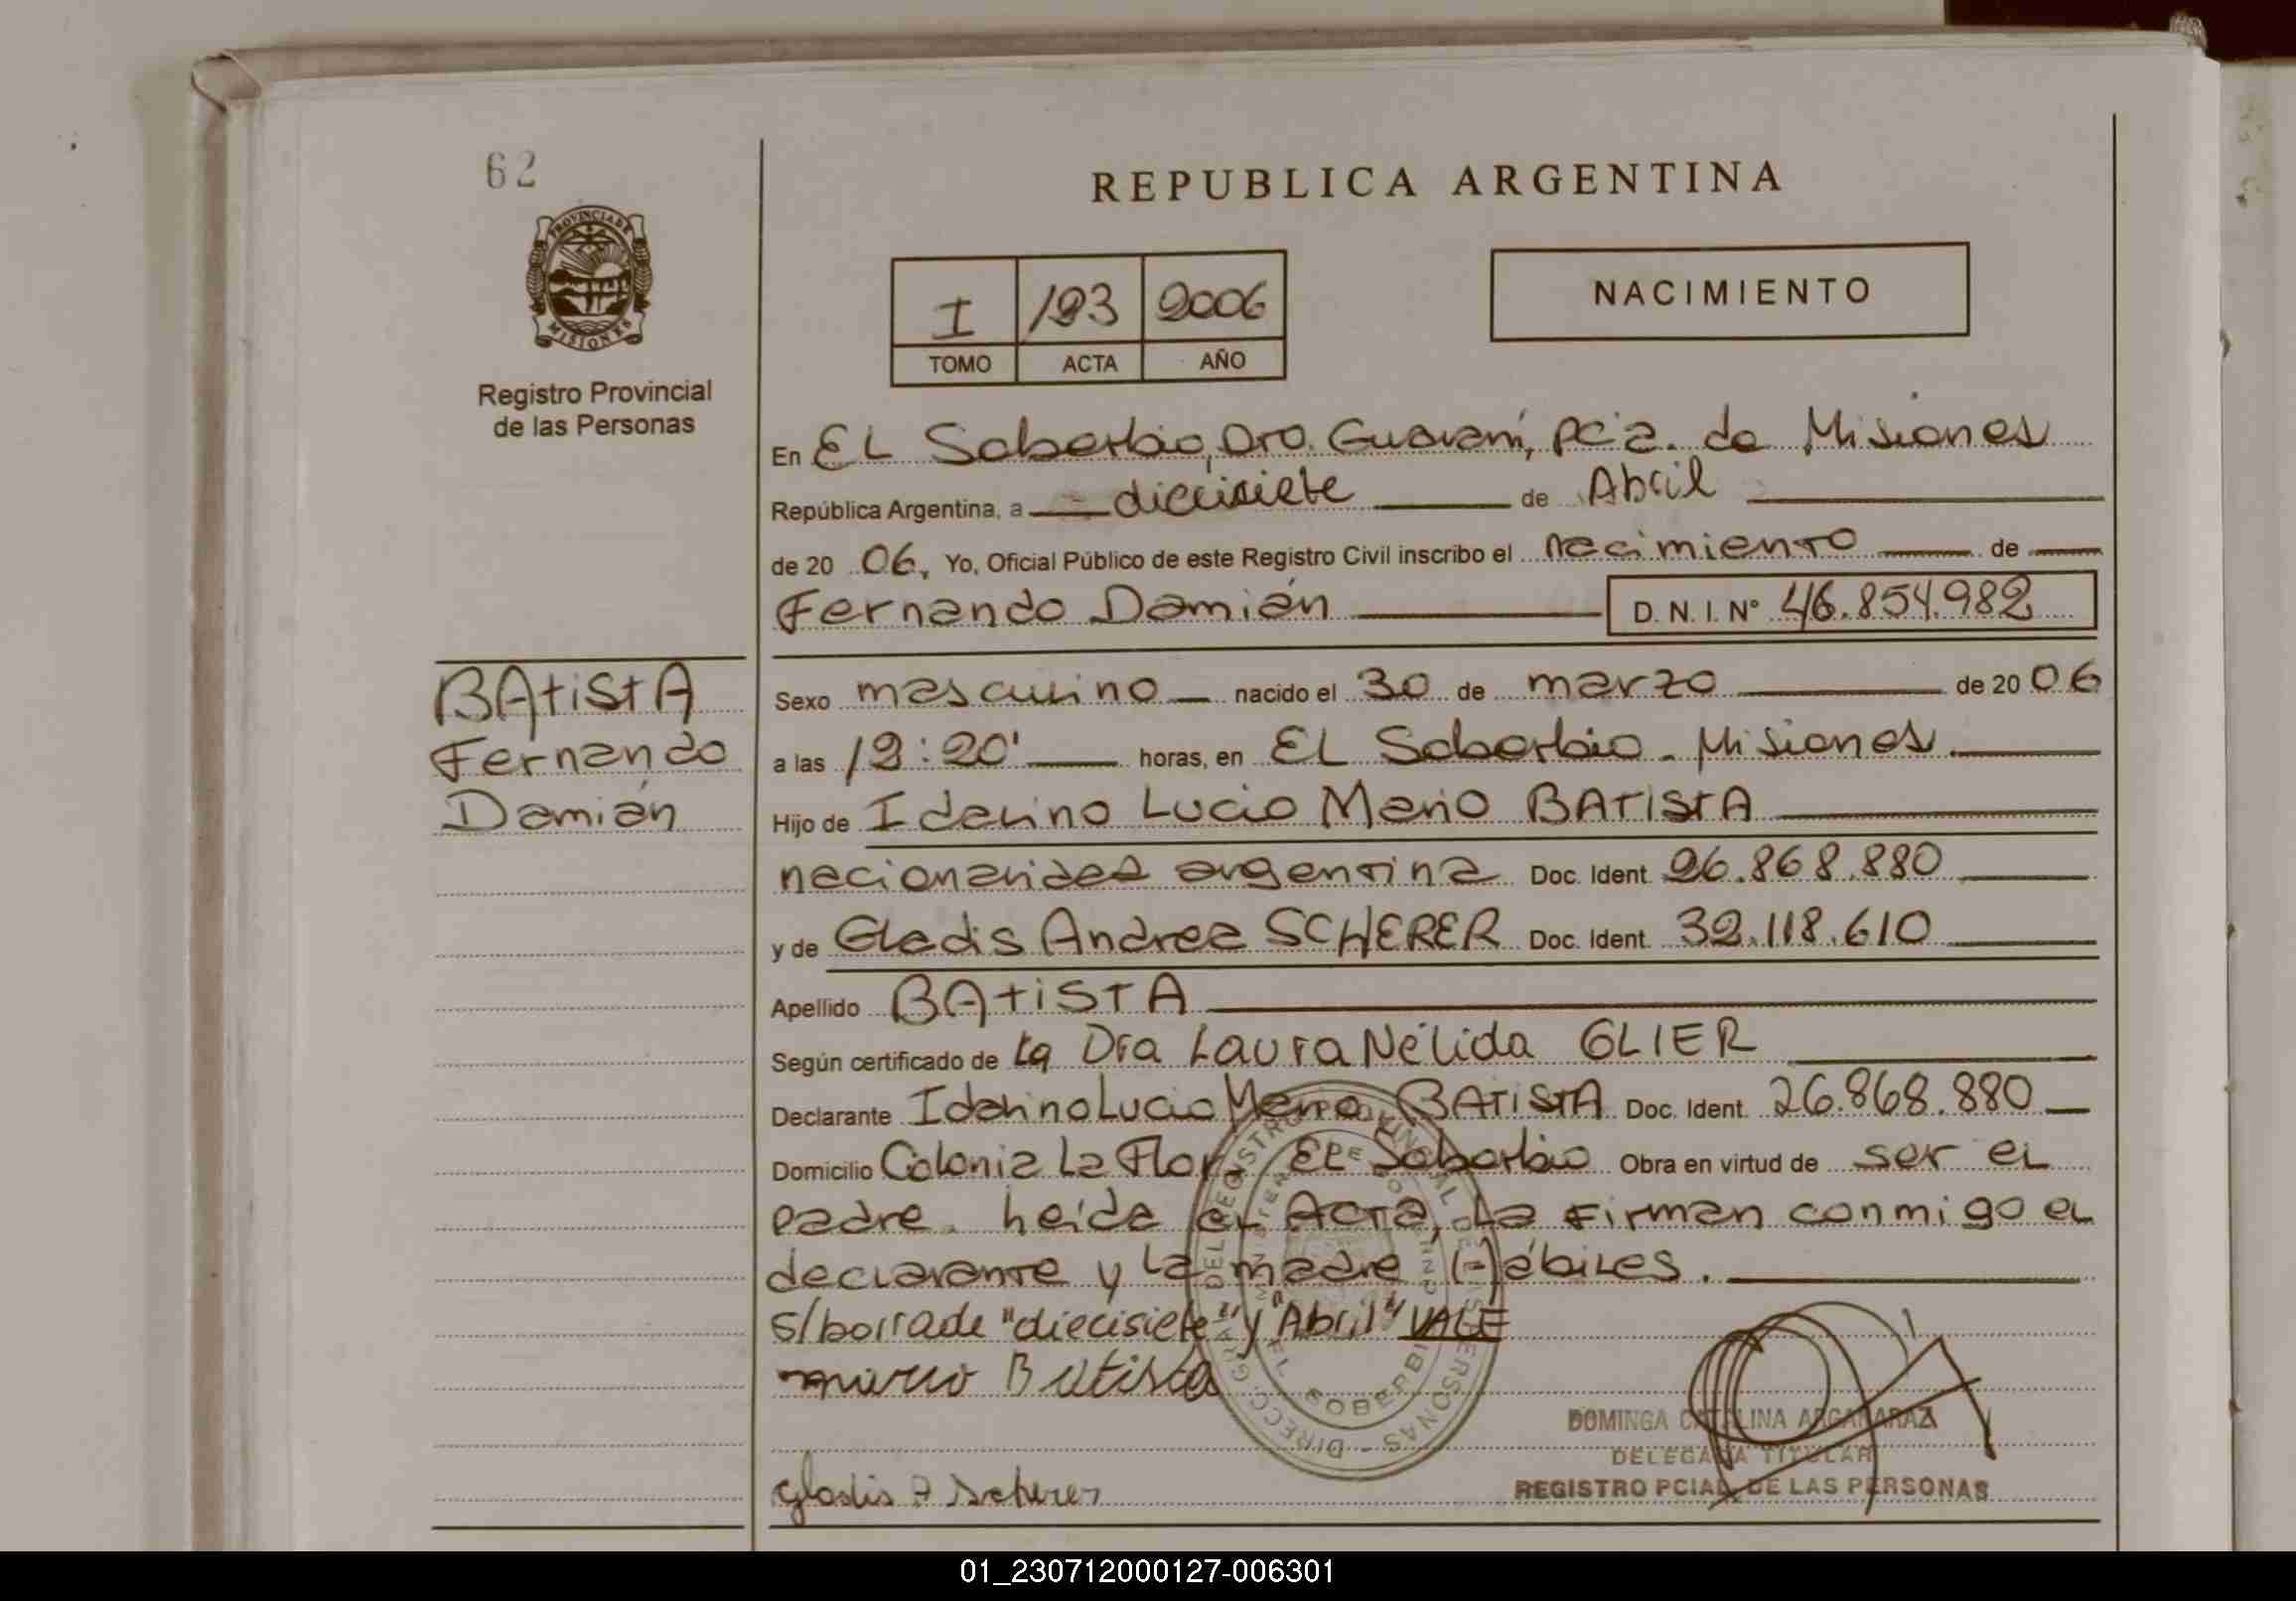 62
REPUBLICA ARGENTINA
PROVINCIA DE
MISIONES
Registro Provincial
de las Personas
I 123 2006
TOMO ACTA AÑO
NACIMIENTO
En EL Soberbio, Dto. Guaraní, Pcia. de Misiones
República Argentina, a diecisiete de Abril
de 20 06, Yo, Oficial Público de este Registro Civil inscribo el nacimiento de
Fernando Damián D.N.I. Nº 46.854.982
BAtistA
Fernando
Damián
Sexo masculino nacido el 30 de marzo de 20 06
a las 12:20' horas, en EL Soberbio - Misiones
Hijo de Idalino Lucio Mario BATistA
nacionalidad argentina Doc. Ident. 26.868.880
y de Gladis Andrea SCHERER Doc. Ident. 32.118.610
Apellido BAtiSTA
Según certificado de la Dra Laura Nélida GLIER
Declarante Idalino Lucio Mario BATISTA Doc. Ident. 26.868.880
Domicilio Colonia La Flor, EL Soberbio Obra en virtud de ser el
padre. Leída el Acta, la firman conmigo el
declarante y la madre Hábiles.
s/borrade "diecisiete" y "Abril" VALE
Batista
Gladis A Scherer
DOMINGA CATALINA ARGAÑARAZ
DELEGADA TITULAR
REGISTRO PCIAL. DE LAS PERSONAS
01_230712000127-006301